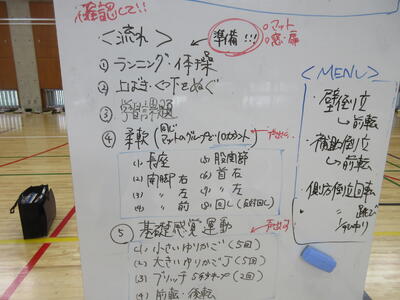 確認して!!
<流れ>
準備!!!
○マット
○窓・扉
① ランニング・体操
② 上ばき・くつ下をぬぐ
③ 学習課題
④ 柔軟(同じマットのグループで10カウント)
(1) 長座
(2) 開脚 右
(3) 〃 左
(4) 〃 前
(5) 股関節
(6) 首 右
(7) 〃 左
(8) 回し(反対回し)
⑤ 基礎感覚運動
(1) 小さいゆりかご(5回)
(2) 大きいゆりかご(5回)
(3) ブリッジ 5秒キープ(2回)
(4) 前転・後転
<MENU>
壁倒立
→前転
補助倒立
→前転
側方倒立回転